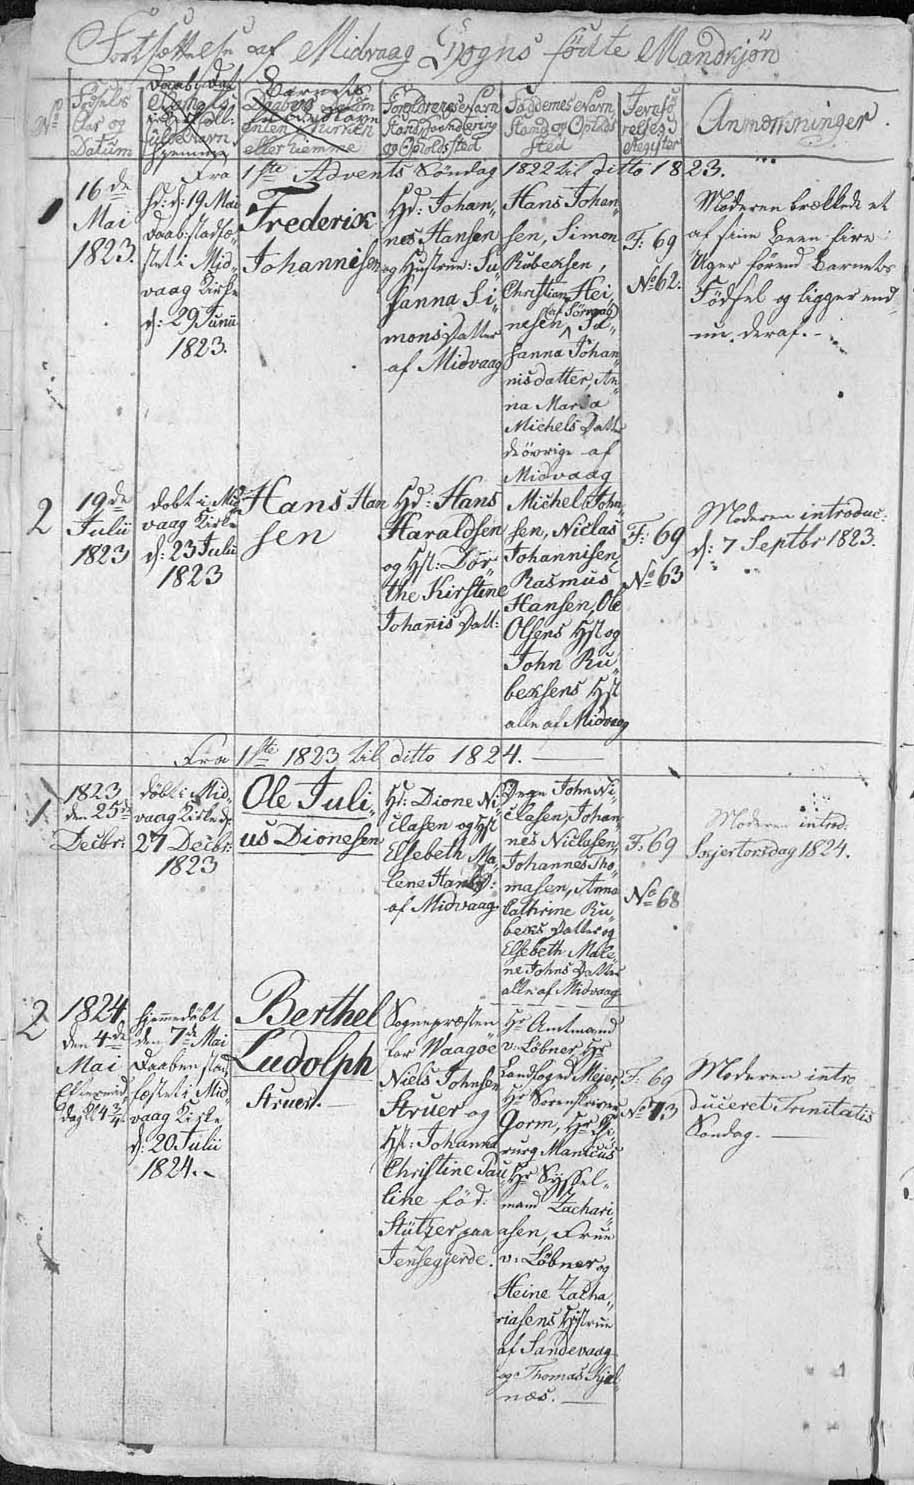 Fortsættelse af Midvaag Sogns fødte Mandkjøn
No
Fødsels
Aar og
Datum
Daabs Dat
Barnets
Forældrenes Navn
Stand Haandtering
og Opholdssted
Faddernes Navn
Stand og Opholds
sted
Jevnfö
relses
Register
Anmærkninger.
Fra 1ste Advents Søndag 1822 til ditto 1823.
1
16de
Mai
1823.
Hd: d: 19 Mai
Daab: stadfæ
stet i Mid
vaag Kirke
d: 29 Junii
1823.
Frederik
Johannisen
Hd: Johan
nes Hansen
og Hustrue: Su
sanna Si
mons Datter
af Midvaag
Hans Johan
sen, Simon
Rubeksen,
Christian Hei
(af Sörvaag)
nesen, Su
sanna Johan
nisdatter, An
na Maria
Michels Datt
de øvrige af
Midvaag
F: 69
No 62.
Moderen brækkede et
af sine Been fire
Uger førend Barnets
Fødsel og ligger end
nu deraf.
2
19de
Julii
1823
Døbt i Mid
vaag Kirke
d: 23 Julii
1823
Hans Han
sen
Hd: Hans
Haraldsen
og Hst: Dor
the Kirstine
Johanis Datt:
Michel John
sen, Niclas
Johannisen,
Rasmus
Hansen, Ole
Olsens Hst og
John Ru
beksens Hst
alle af Midvaag
F: 69
No 63
Moderen introduc:
d: 7 Septbr 1823.
Fra 1ste 1823 til ditto 1824.
1
1823
den 25de
Decbr:
døbt i Mid
vaag Kirke d:
27 Decbr:
1823
Ole Juli
us Dionesen
Hd: Dione Ni
clasen og Hst
Elsebeth Ma
lene Hans D:
af Midvaag
Degn John Ni
clasen, Johan
nes Niclasen,
Johannes Tho
masen, Anna
Cathrine Ru
beks Datter og
Elsebeth Male
ne Johns Datter
alle af Midvaag
F: 69
No 68
Moderen introd:
Skjertorsdag 1824.
2
1824.
den 4de
Mai
Eftermid
dag Kl 4 3/4
hjemmedøbt
den 7de Mai
Daaben stad
fæstet i Mid
vaag Kirke
d: 20 Julii
1824.
Berthel
Ludolph
Struer.
Sognepræsten
for Waagøe
Niels Johnsen
Struer og
Hst: Johanna
Christine Pau
line föd:
Stützer paa
Jensegjerde.
Hr Amtmand
v: Løbner, Hr
Landfoged Mejer,
Hr Sorenskriver
Gorm, Hr Chi
rurg Manicus
Hr Syssel
mand Zachari
asen, Fruе
v: Løbner og
Heine Zacha
riasens Hustrue
af Sandevaag
og Thomas Kjel
næs.
F: 69
No 73
Moderen intro
duceret Trinitatis
Søndag.